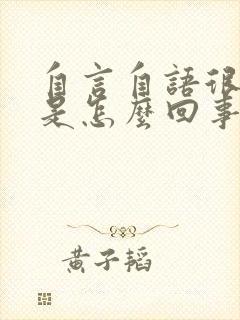 自言自語很
是怎麼回事
黃子韜